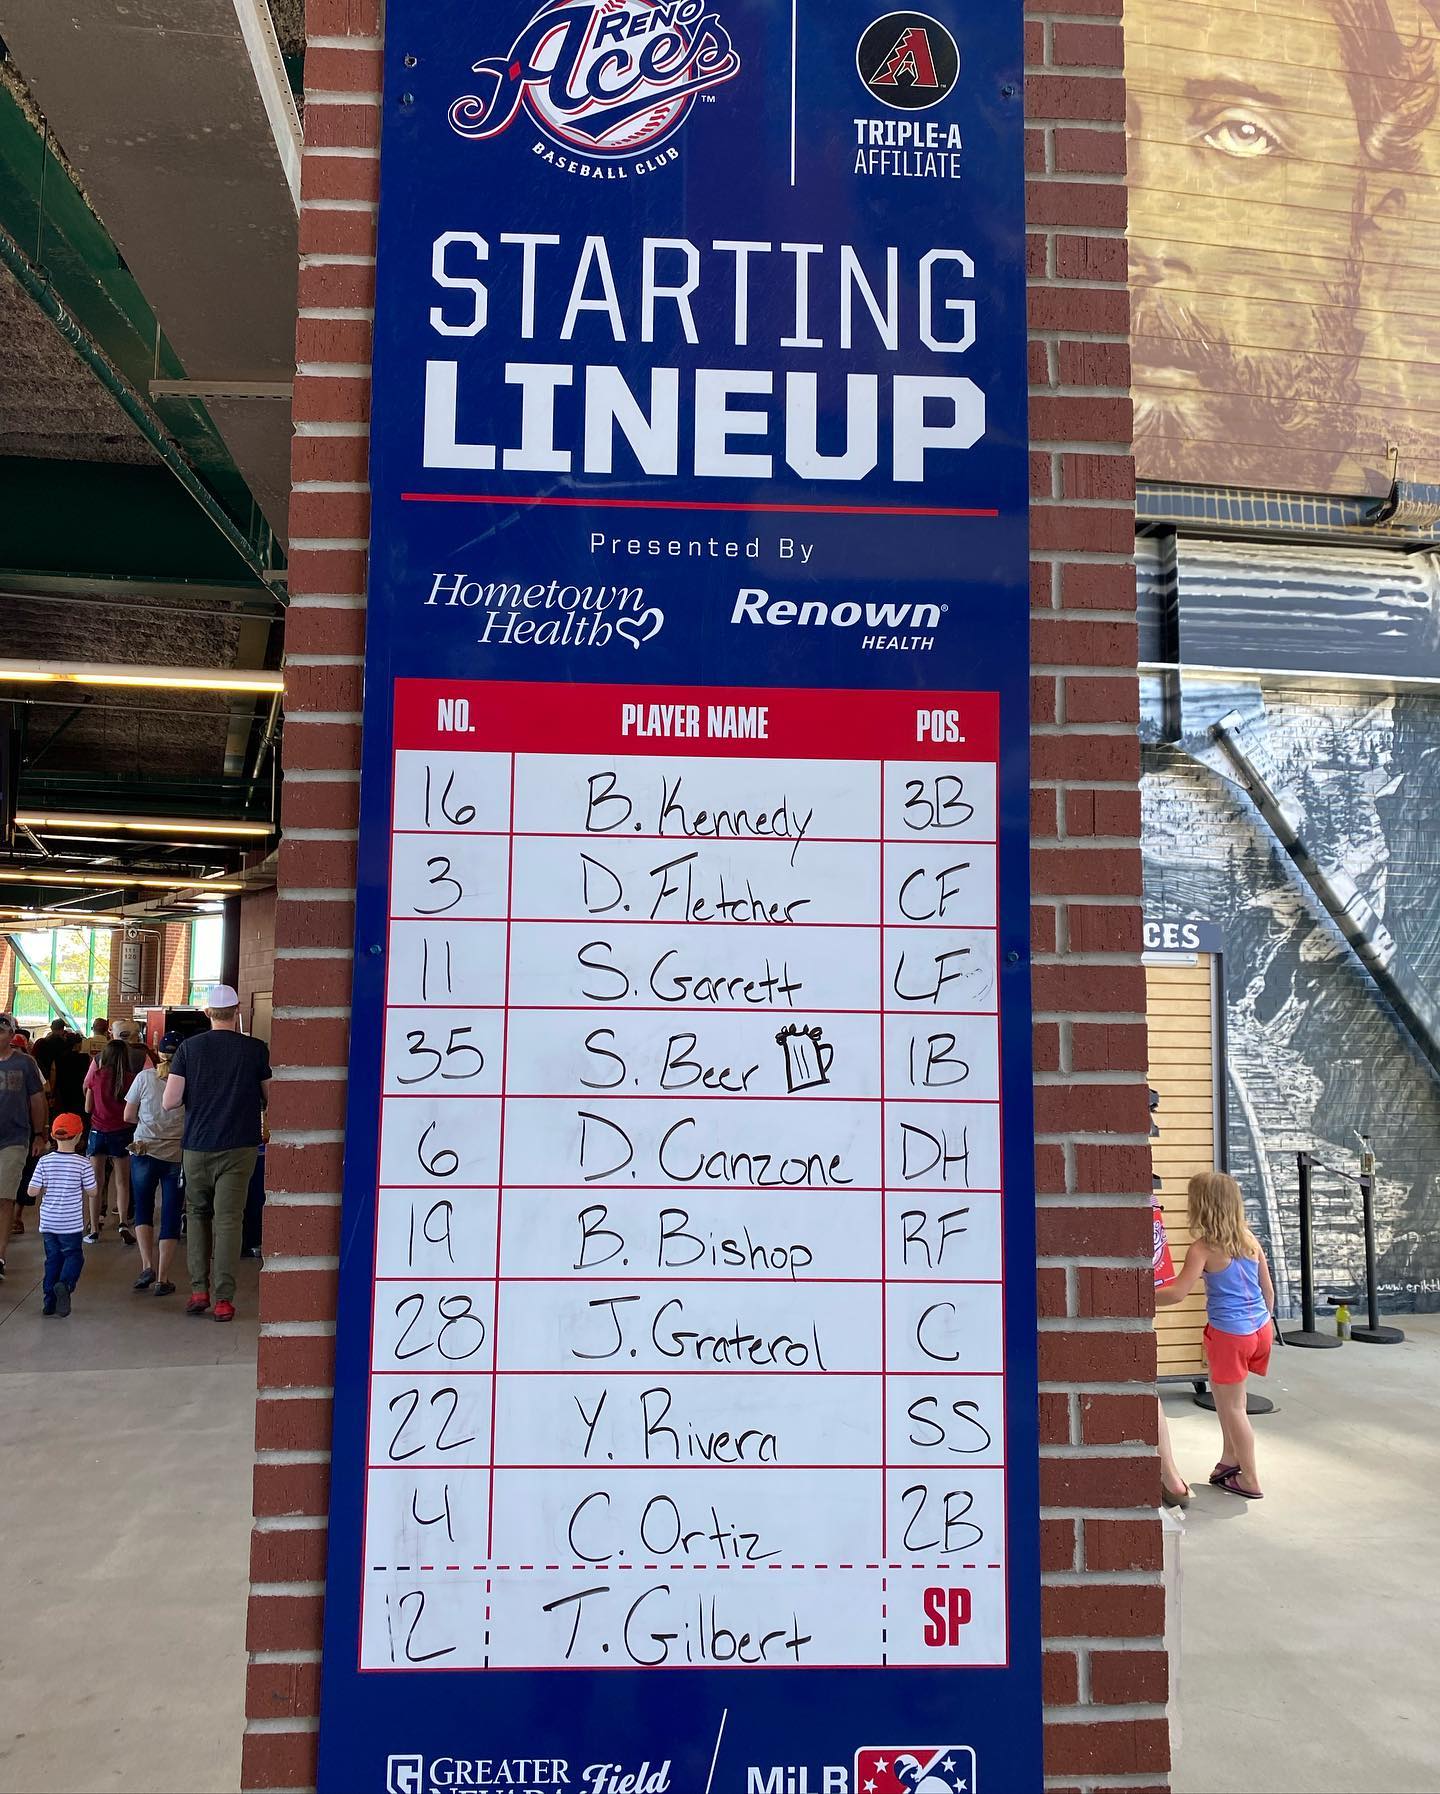 RENO
Aces
™
BASEBALL CLUB
TRIPLE-A
AFFILIATE
STARTING
LINEUP
Presented By
Hometown Health
Renown®
HEALTH
NO. PLAYER NAME POS.
16 B. Kennedy 3B
3 D. Fletcher CF
11 S. Garrett LF
35 S. Beer 1B
6 D. Canzone DH
19 B. Bishop RF
28 J. Graterol C
22 Y. Rivera SS
4 C. Ortiz 2B
12 T. Gilbert SP
GREATER
NEVADA Field
MiLB
CES
111
120